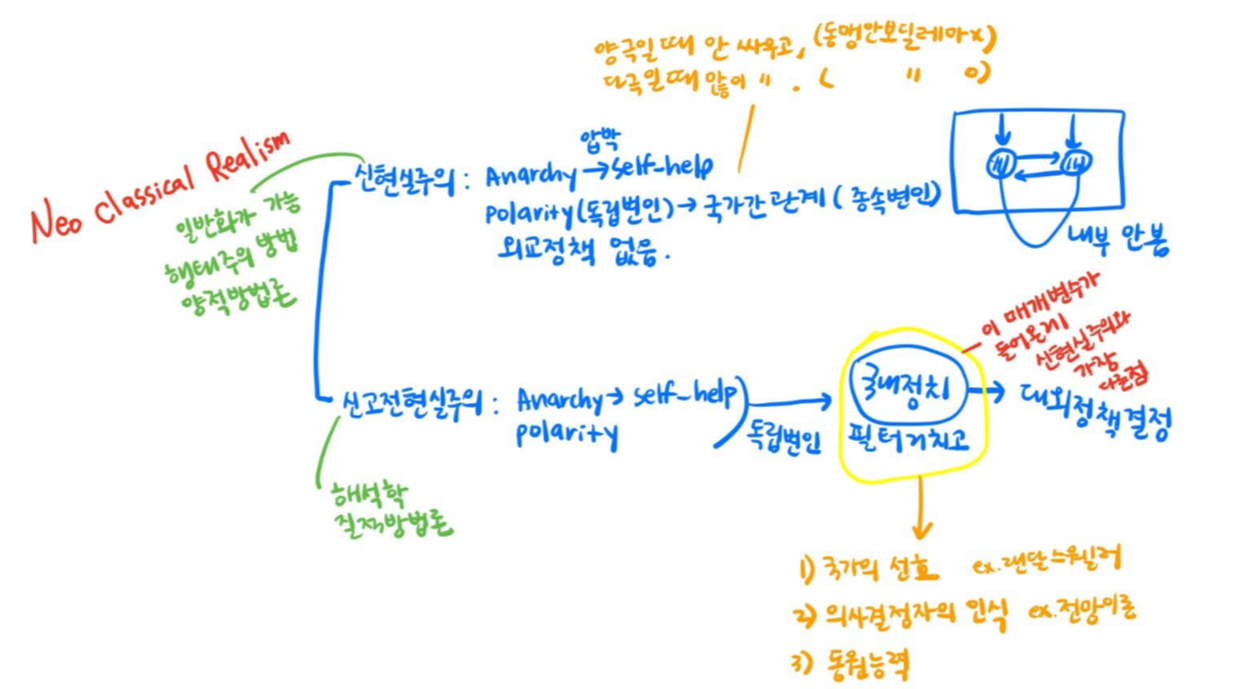 Neo Classical Realism
양극일때 안 싸우고, (동맹안보딜레마x)
다극일때 많이 〃 . ( 〃 o)
압박
신현실주의 : Anarchy → self-help
polarity(독립변인) → 국가간 관계 ( 종속변인)
외교정책 없음.
일반화가 가능
행태주의 방법
양적방법론
내부 안봄
이 매개변수가
들어온게
신현실주의와
가장
다른점
신고전현실주의 : Anarchy → self-help
polarity
독립변인
국내정치
필터거치고
대외정책결정
해석학
질적방법론
1) 국가의 선호 ex.랜달스웰러
2) 의사결정자의 인식 ex.전망이론
3) 동원능력